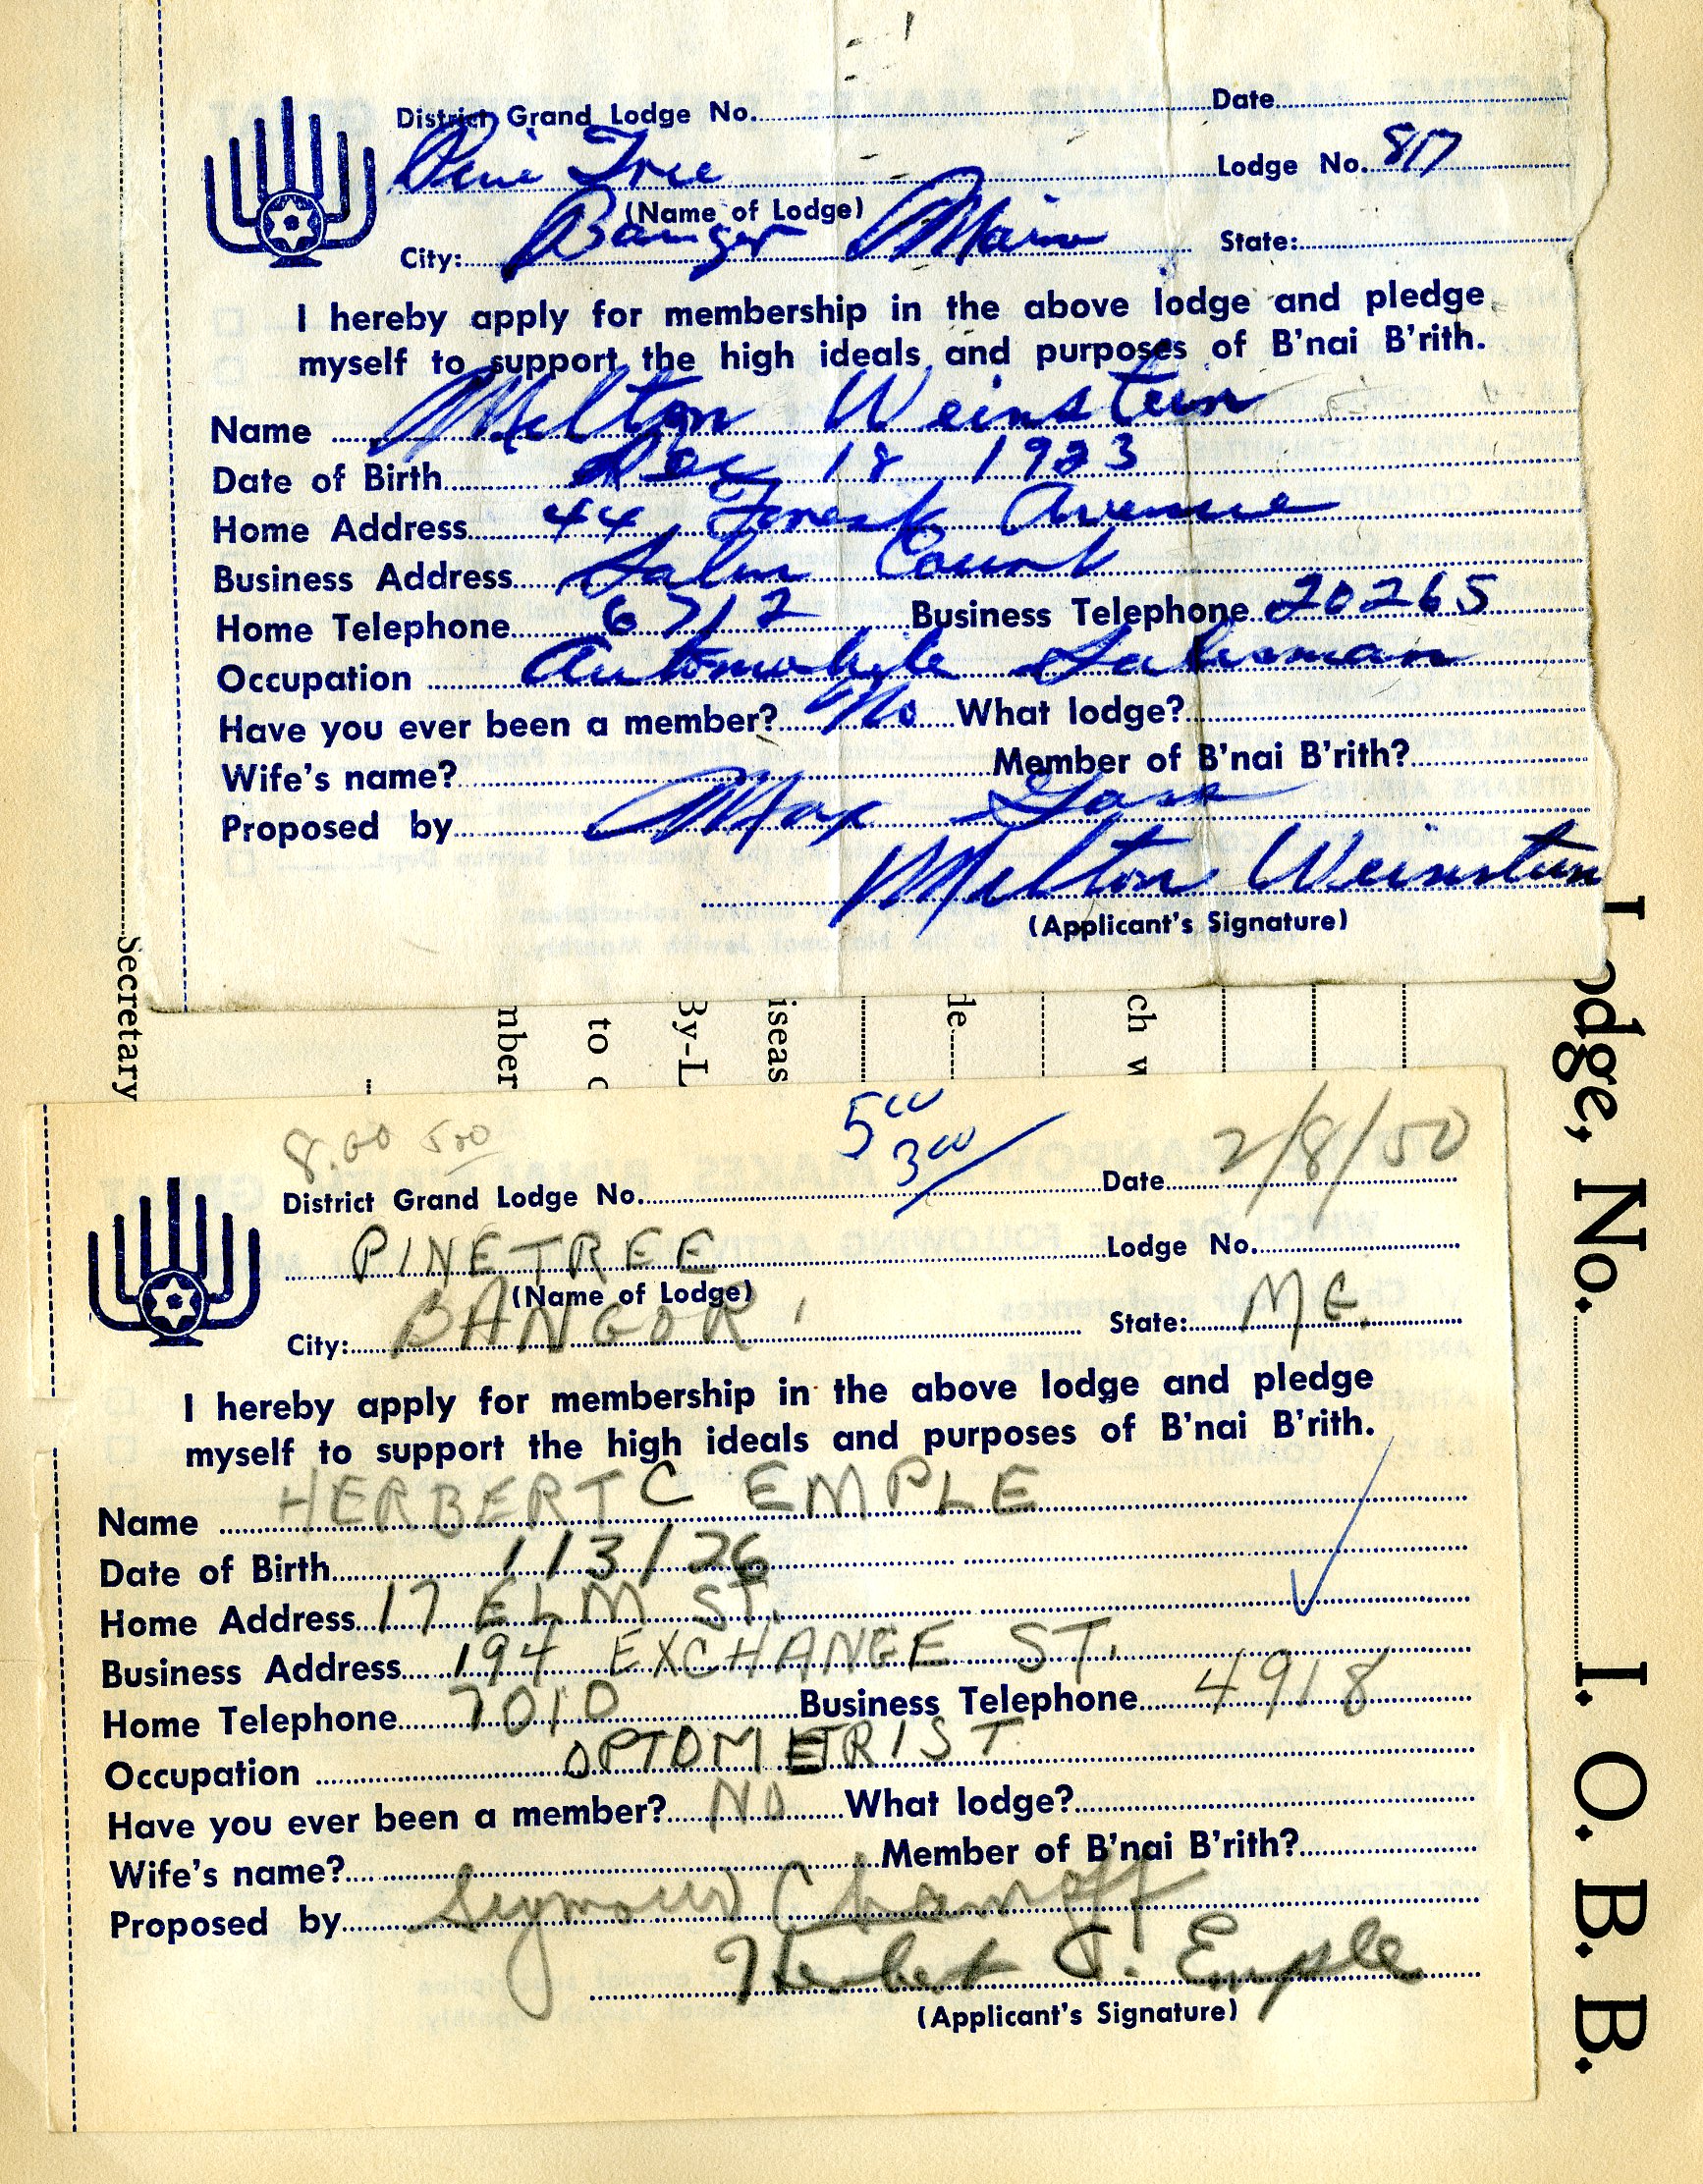 District Grand Lodge No. Date
Pine Tree Lodge No. 817
(Name of Lodge)
City: Bangor Maine State:
I hereby apply for membership in the above lodge and pledge
myself to support the high ideals and purposes of B'nai B'rith.
Name Milton Weinstein
Date of Birth Dec 18 1923
Home Address 44 Forest Avenue
Business Address Salem Court
Home Telephone 6712 Business Telephone 20265
Occupation Automobile Salesman
Have you ever been a member? No What lodge?
Wife's name? Member of B'nai B'rith?
Proposed by Max
Milton Weinstein
(Applicant's Signature)
Secretary
mber
to
By-L
iseas
de
ch w
Lodge, No. I. O. B. B.
8.00 5.00 5 00
3 00
District Grand Lodge No. Date 2/8/50
PINE TREE Lodge No.
(Name of Lodge)
City: BANGOR, State: ME.
I hereby apply for membership in the above lodge and pledge
myself to support the high ideals and purposes of B'nai B'rith.
Name HERBERT C EMPLE
Date of Birth 1/3/26
Home Address 17 ELM ST.
Business Address 194 EXCHANGE ST.
Home Telephone 7010 Business Telephone 4918
Occupation OPTOMETRIST
Have you ever been a member? NO What lodge?
Wife's name? Member of B'nai B'rith?
Proposed by Seymour
Herbert C. Emple
(Applicant's Signature)